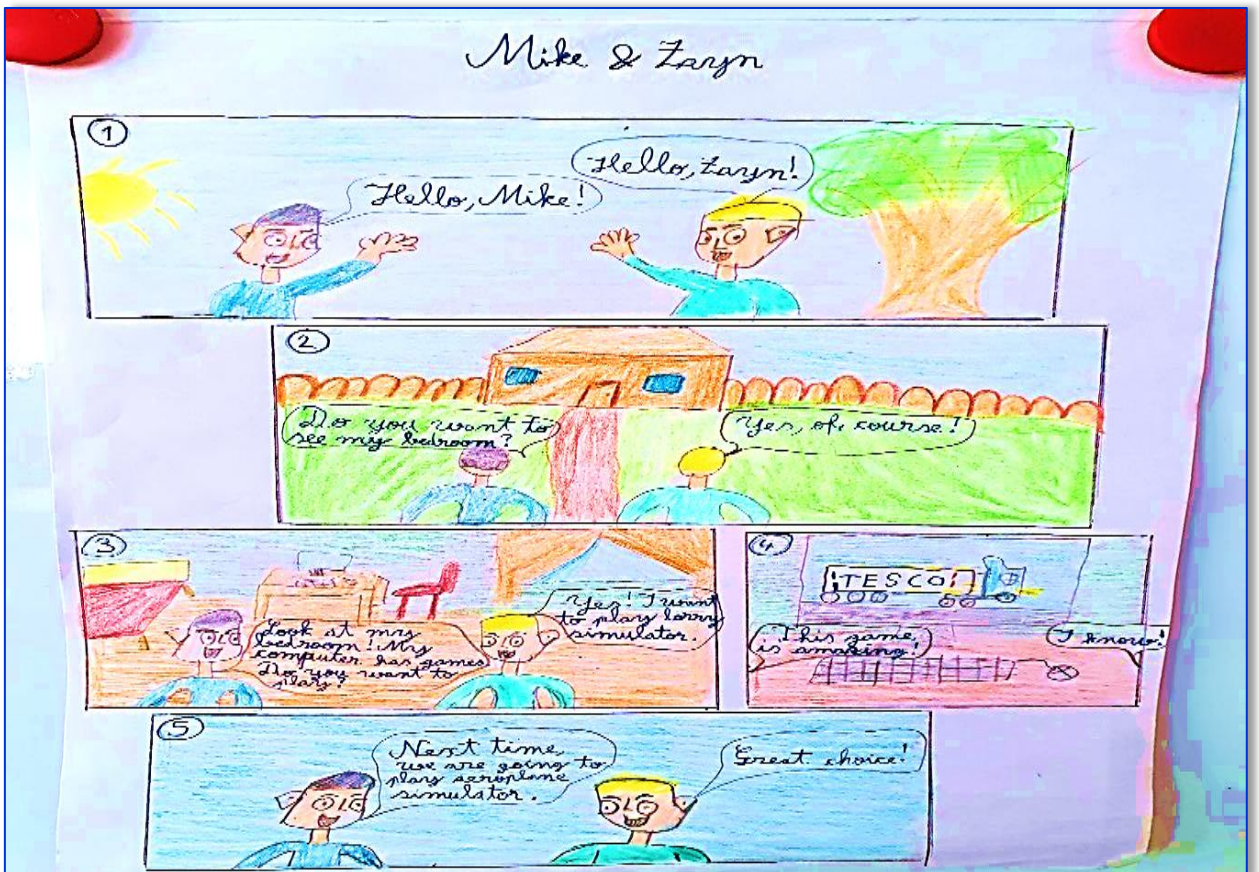 Mike & Zayn
1
Hello, Mike!
Hello, Zayn!
2
Do you want to
see my bedroom?
Yes, of course!
3
Look at my
bedroom! My
computer has games
Do you want to
play?
Yes! I want
to play lorry
simulator.
4
TESCO
This game
is amazing!
I know!
5
Next time,
we are going to
play aeroplane
simulator.
Great choice!